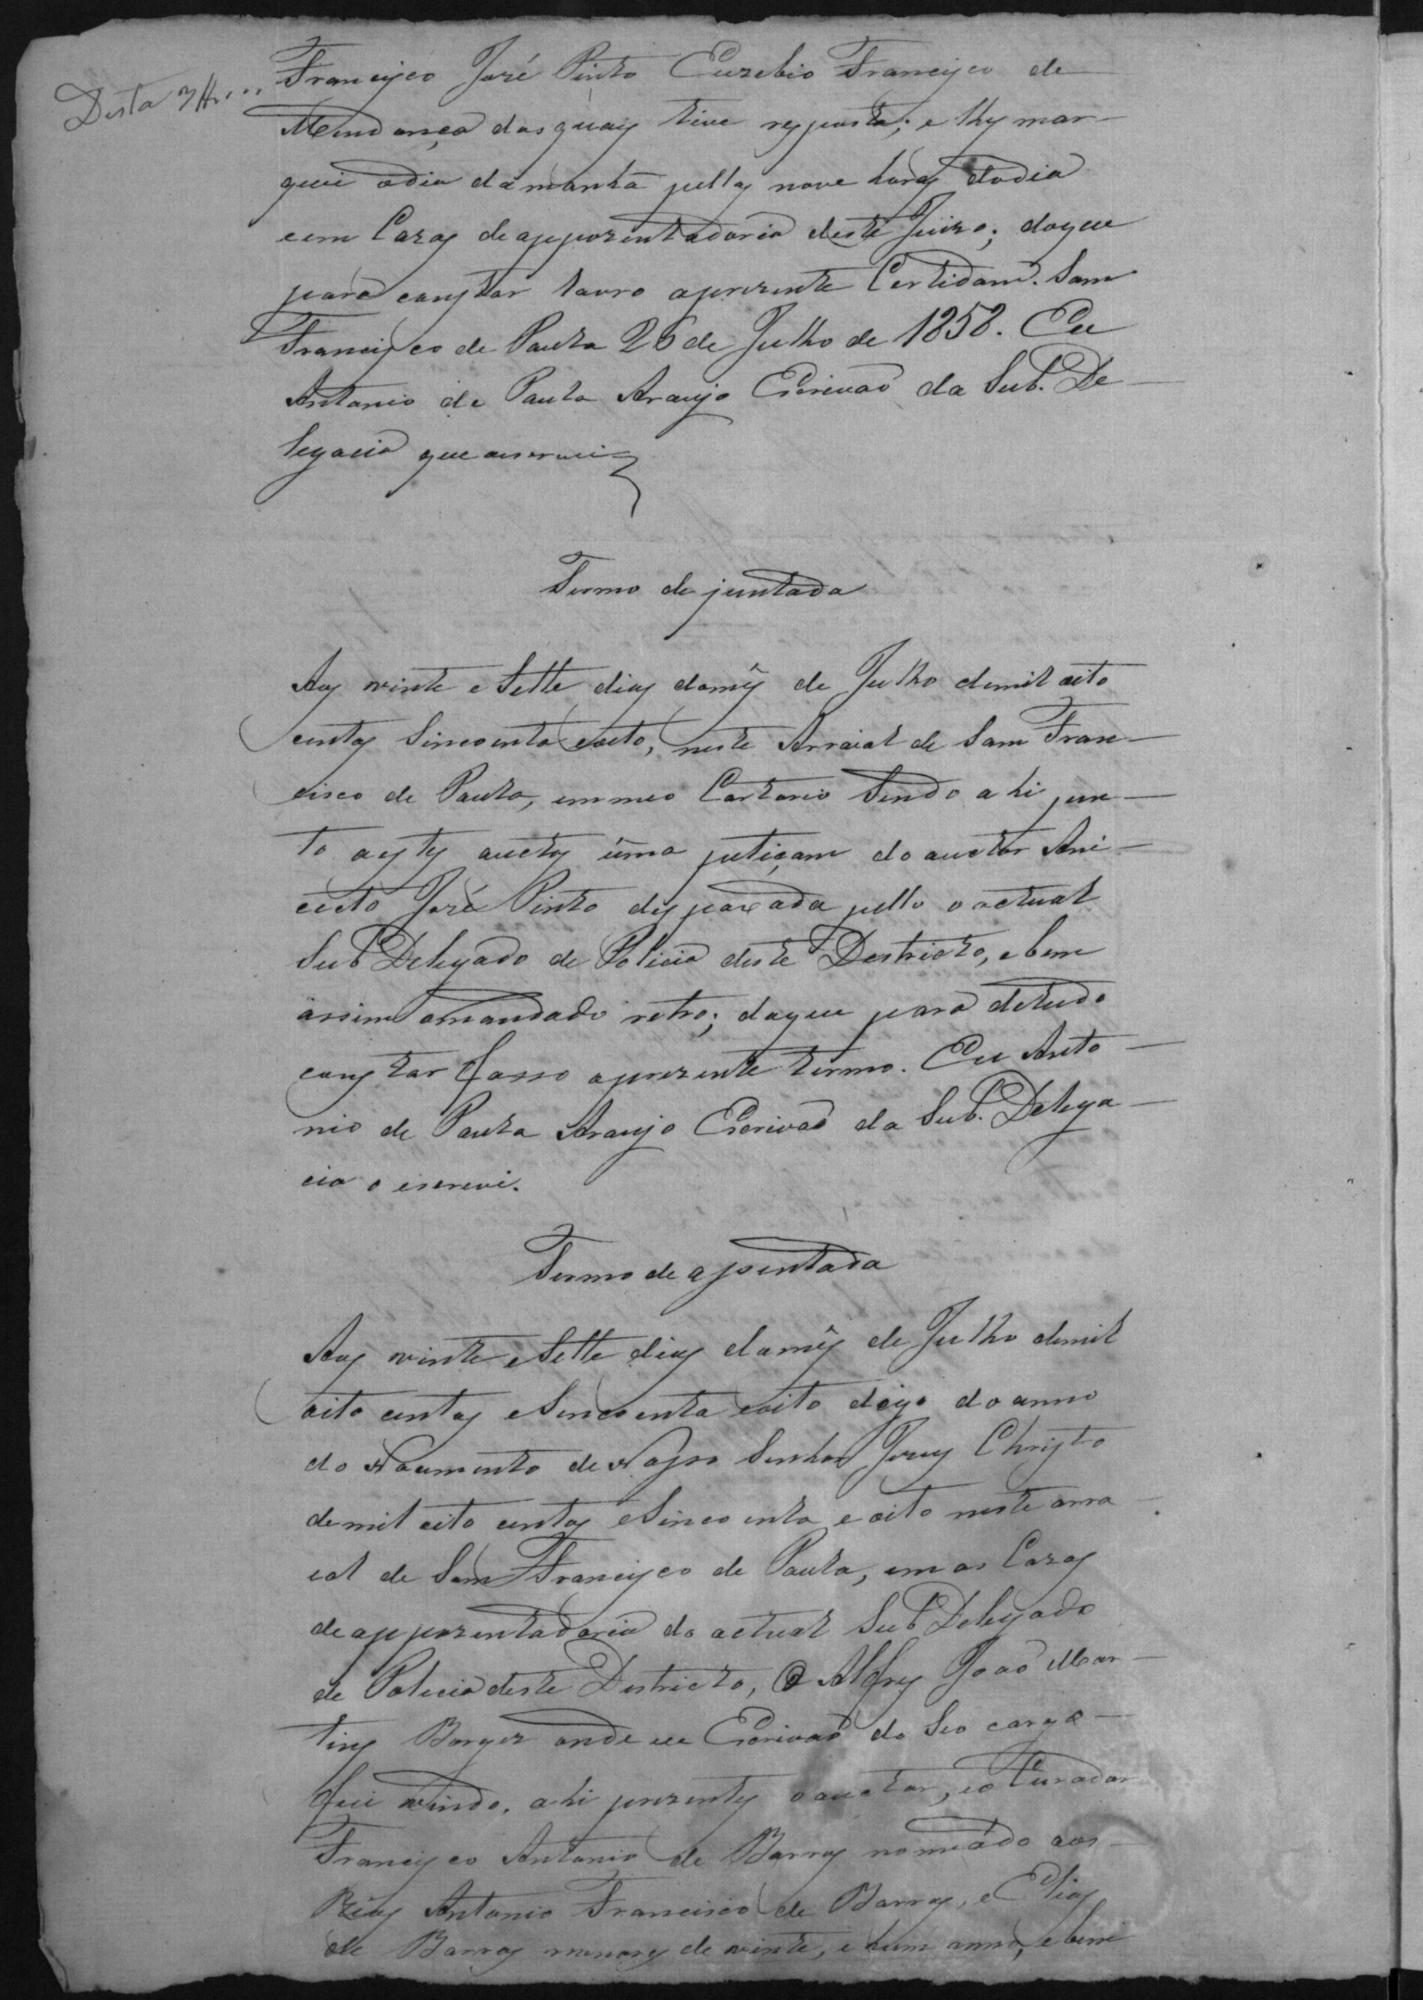 Desta
Francisco José Pinto Euzebio Francisco de
Mendonça dos quais tive resposta; e lhes mar-
quei odia damanhã pellas nove horas dodia
em Cazas de appozentadoria deste Juizo; doque
para constar lavro aprezente Certidam. Sam
Francisco de Paula 26 de Julho de 1858. Eu
Antonio de Paula Araujo Escrivaõ da Sub. De-
legacia que aescrevi
Termo de juntada
Aos vinte e Sette dias domês de Julho demil oito
centos Sincoenta eoito, neste Arraial de Sam Fran-
cisco de Paula, emmeo Cartorio Sendo ahi jun-
to aestes auctos uma petiçam do auctor Ani-
ceto José Pinto despaxada pello o actual
Sub Delegado de Policia deste Destricto, e bem
assim omandado retro; doque para detudo
constar fasso aprezente termo. Eu Anto-
nio de Paula Araujo Escrivaõ da Sub. Delega-
cia o escrevi.
Termo de apentada
Aos vinte e Sette dias domês de Julho demil
oito centos eSincoenta eoito digo do anno
do Nacimento de Nosso Senhor Jezus Christo
demil oito centos eSincoenta e oito neste arra-
ial de Sam Francisco de Paula, em as Cazas
de appozentadoria do actual Sub Delegado
de Policia deste Destricto, O Alferes Joaõ Mar-
tins Borges onde eu Escrivaõ do Seo cargo
fui vindo, ahi prezentes oauctor, eo Curador
Francisco Antonio de Barros nomeádo aos
Réos Antonio Francisco de Barros, e Elias
de Barros menores de vinte, e hum anno, e bem